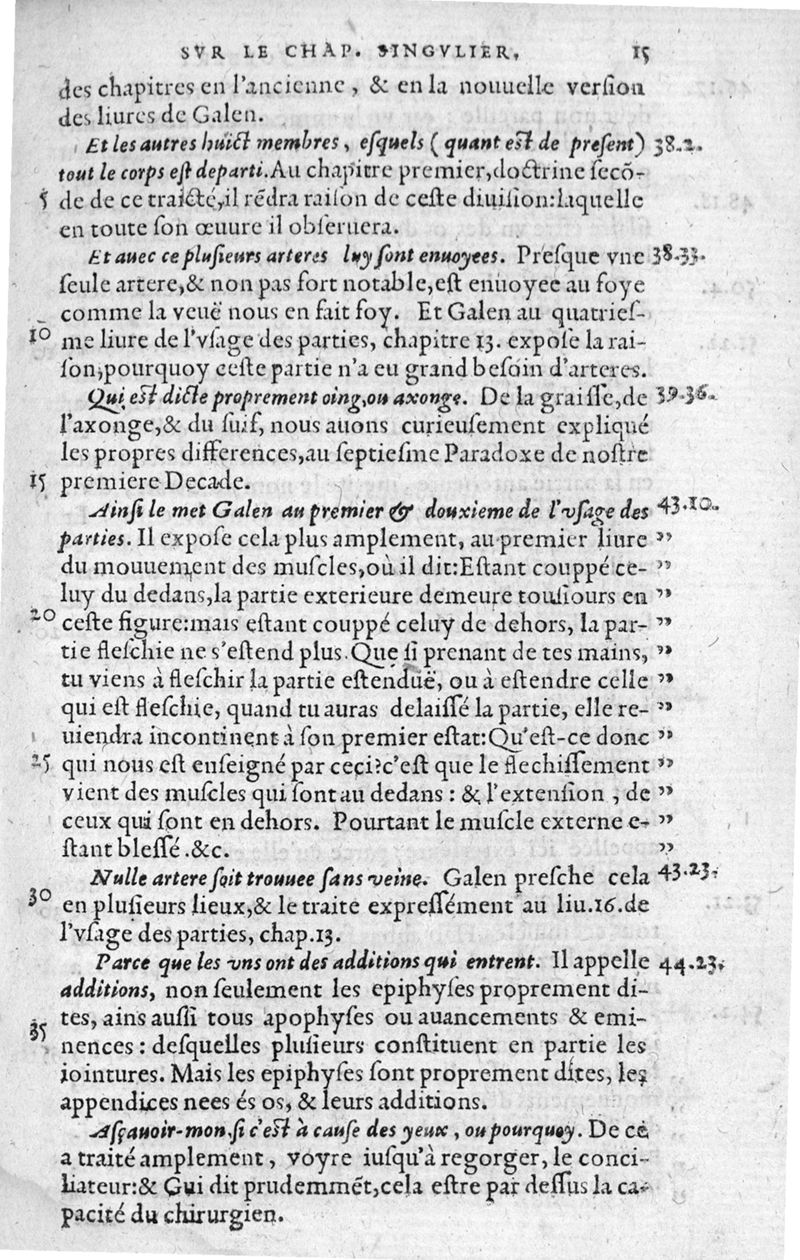 SVR LE CHAP. SINGVLIER, 15
des chapitres en l'ancienne, & en la nouuelle verſion
des liures de Galen.
Et les autres huict membres, eſquels (quant eſt de preſent) 38.2.
tout le corps eſt departi. Au chapitre premier, doctrine ſecõ-
5 de de ce traicté, il rẽdra raiſon de ceſte diuiſion: laquelle
en toute ſon œuure il obſeruera.
Et auec ce pluſieurs arteres luy ſont enuoyees. Preſque vne 38.33.
ſeule artere, & non pas fort notable, eſt enuoyee au foye
comme la veuë nous en fait foy. Et Galen au quatrieſ-
10 me liure de l'vſage des parties, chapitre 13. expoſe la rai-
ſon, pourquoy ceſte partie n'a eu grand beſoin d'arteres.
Qui eſt dicte proprement oing, ou axonge. De la graiſſe, de 39.36.
l'axonge, & du ſuif, nous auons curieuſement expliqué
les propres differences, au ſeptieſme Paradoxe de noſtre
15 premiere Decade.
Ainſi le met Galen au premier & douxieme de l'vſage des 43.10.
parties. Il expoſe cela plus amplement, au premier liure ”
du mouuement des muſcles, où il dit: Eſtant couppé ce- ”
luy du dedans, la partie exterieure demeure touſiours en ”
20 ceſte figure: mais eſtant couppé celuy de dehors, la par- ”
tie fleſchie ne s'eſtend plus. Que ſi prenant de tes mains, ”
tu viens à fleſchir la partie eſtenduë, ou à eſtendre celle ”
qui eſt fleſchie, quand tu auras delaiſſé la partie, elle re- ”
uiendra incontinent à ſon premier eſtat: Qu'eſt-ce donc ”
25 qui nous eſt enſeigné par ceci? c'eſt que le flechiſſement ”
vient des muſcles qui ſont au dedans: & l'extenſion, de ”
ceux qui ſont en dehors. Pourtant le muſcle externe e- ”
ſtant bleſſé. &c. ”
Nulle artere ſoit trouuee ſans veine. Galen preſche cela 43.23.
30 en pluſieurs lieux, & le traite expreſſément au liu. 16. de
l'vſage des parties, chap. 13.
Parce que les vns ont des additions qui entrent. Il appelle 44.23.
additions, non ſeulement les epiphyſes proprement di-
tes, ains auſſi tous apophyſes ou auancements & emi-
35 nences: deſquelles pluſieurs conſtituent en partie les
iointures. Mais les epiphyſes ſont proprement dites, les
appendices nees és os, & leurs additions.
Aſçauoir-mon, ſi c'eſt à cauſe des yeux, ou pourquoy. De ce
a traité amplement, voyre iuſqu'à regorger, le conci-
liateur: & Gui dit prudemmẽt, cela eſtre par deſſus la ca-
pacité du chirurgien.